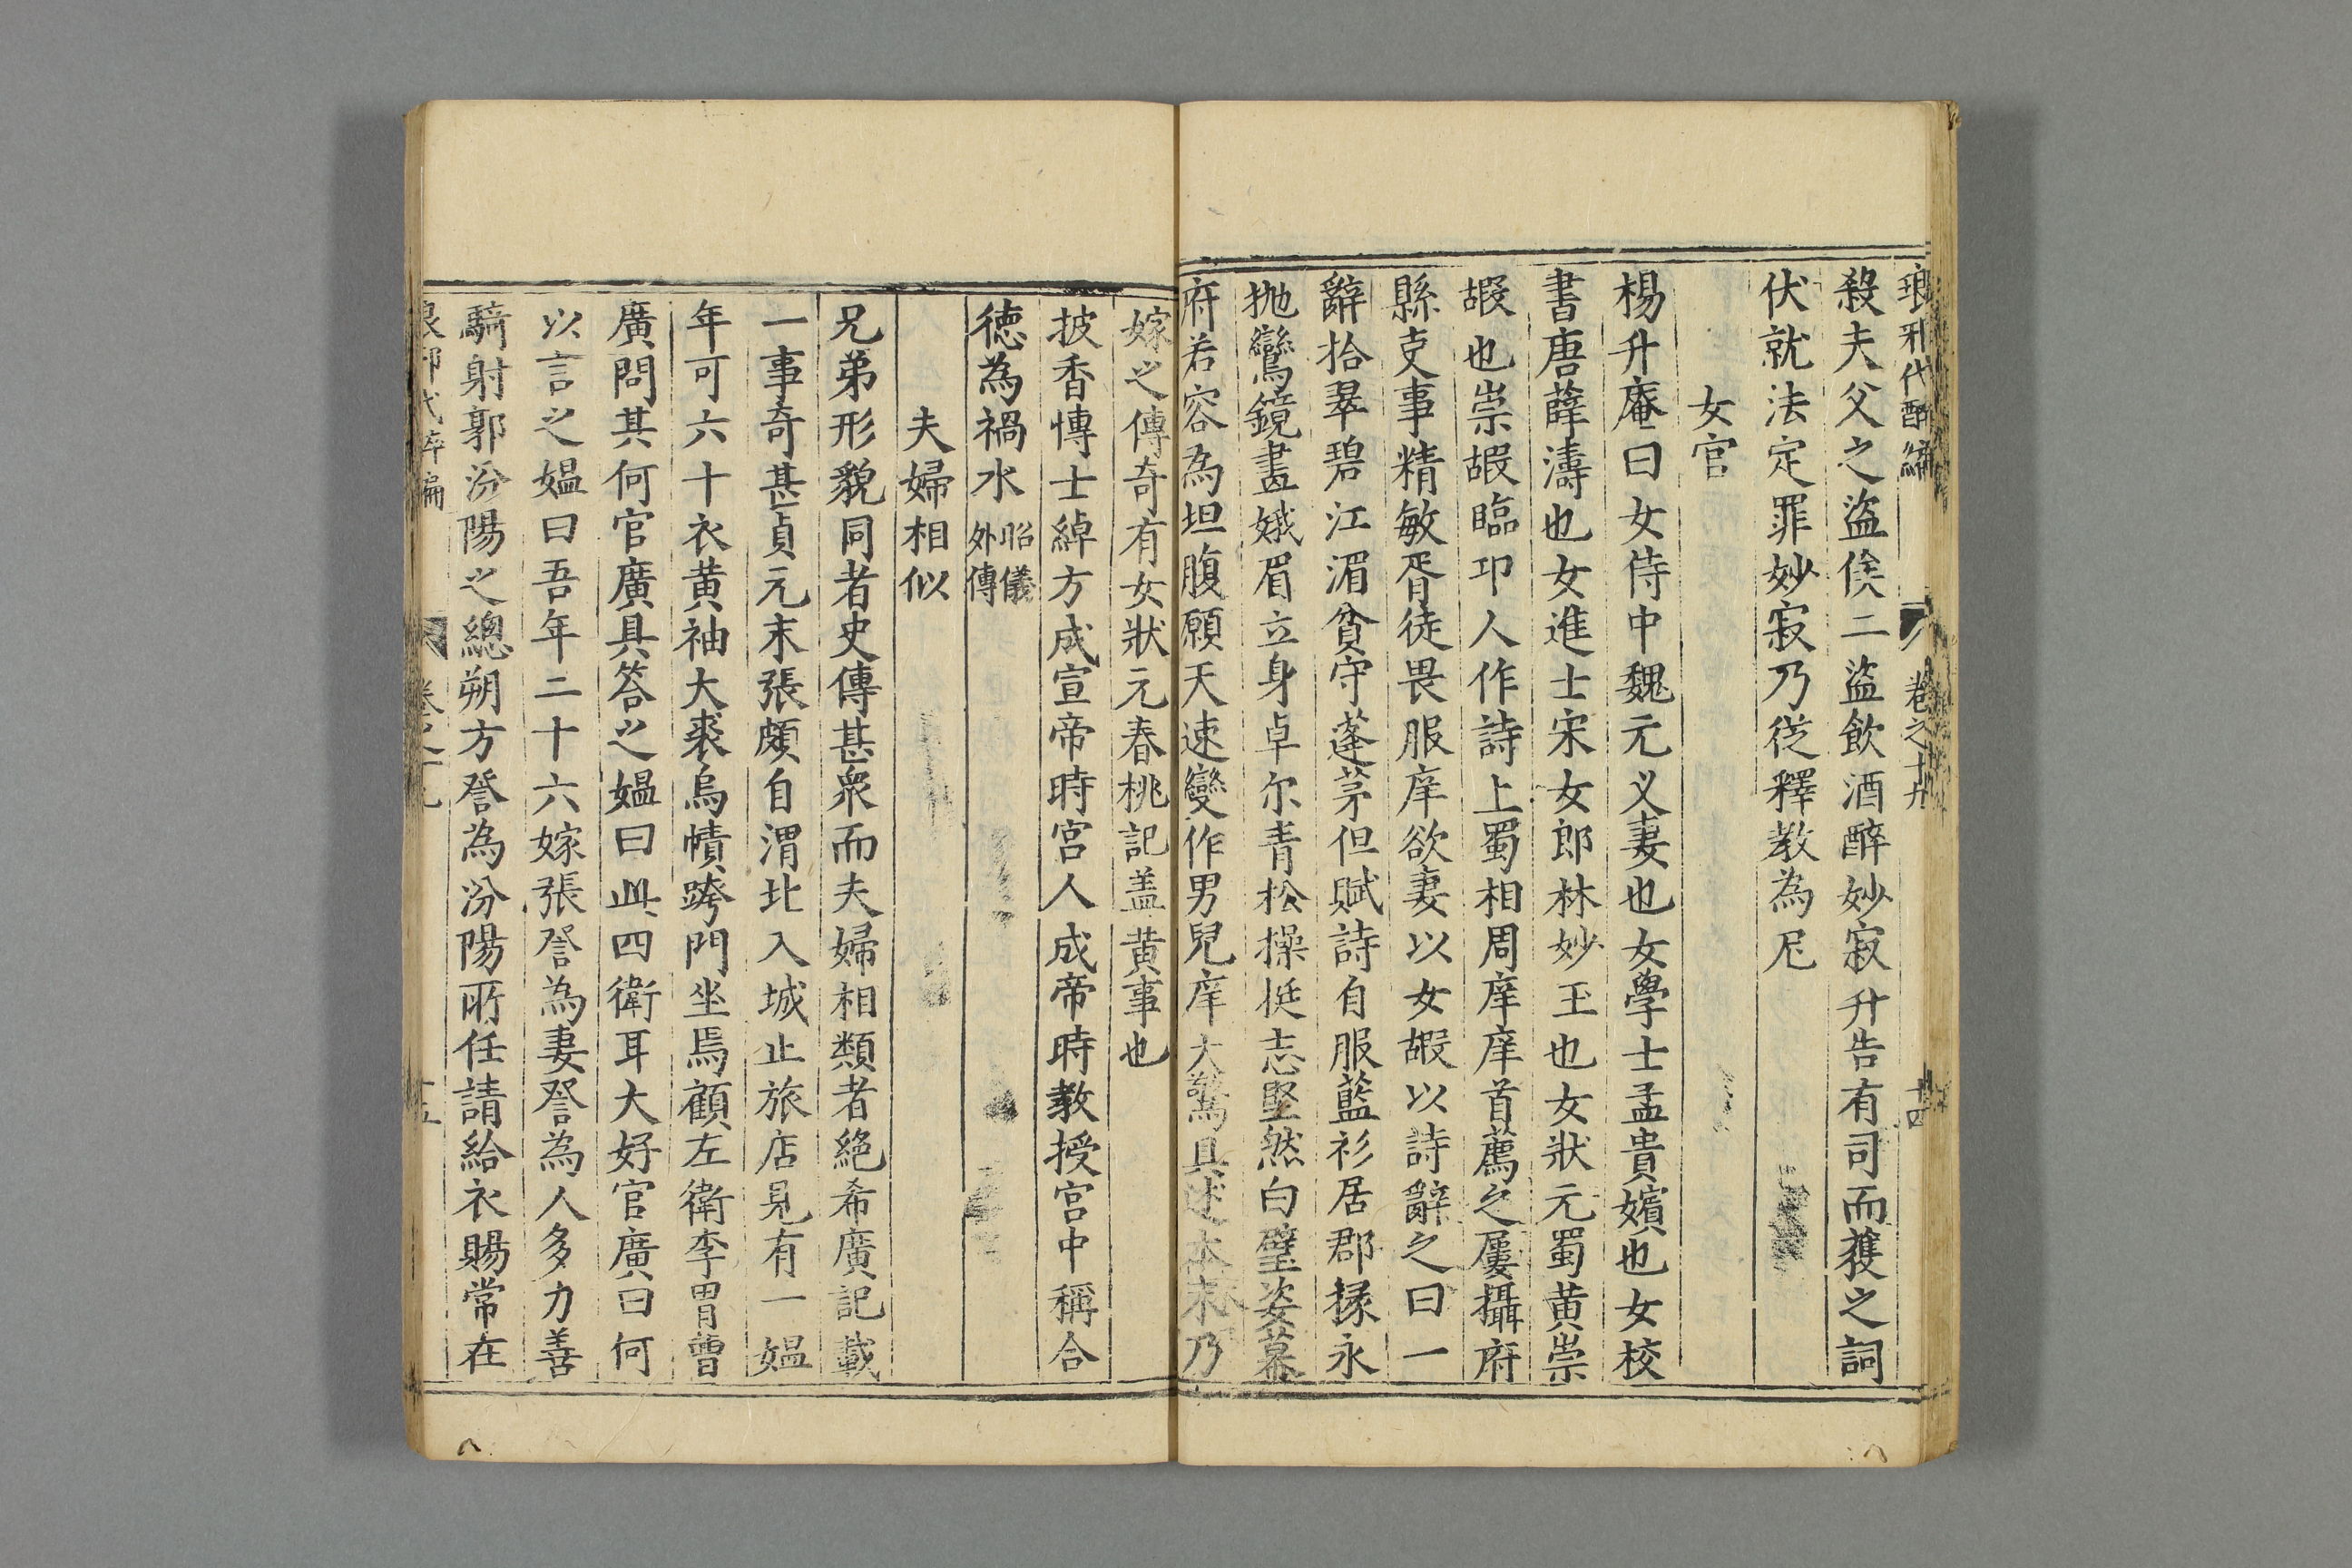 琅邪代醉編 卷之十九 十四
殺夫父之盜俟二盜飲酒醉妙寂升告有司而獲之詞
伏就法定罪妙寂乃從釋教為尼
女官
楊升庵曰女侍中魏元义妻也女學士孟貴嬪也女校
書唐薛濤也女進士宋女郎林妙玉也女狀元蜀黃崇
嘏也崇嘏臨卭人作詩上蜀相周庠庠首薦之屢攝府
縣吏事精敏胥徒畏服庠欲妻以女嘏以詩辭之曰一
辭拾翠碧江湄貧守蓬茅但賦詩自服藍衫居郡掾永
拋鸞鏡畫娥眉立身卓尔青松操挺志堅然白璧姿幕
府若容為坦腹願天速變作男兒庠大驚具述本末乃
嫁之傳奇有女狀元春桃記盖黃事也
披香愽士綽方成宣帝時宮人成帝時教授宮中稱合
德為禍水 昭儀
外傳
夫婦相似
兄弟形貌同者史傳甚衆而夫婦相類者絕希廣記載
一事奇甚貞元末張頗自渭北入城止旅店見有一媼
年可六十衣黃袖大裘烏幘跨門坐焉顧左衛李胃曹
廣問其何官廣具答之媼曰此四衛耳大好官廣曰何
以言之媼曰吾年二十六嫁張詧為妻詧為人多力善
騎射郭汾陽之總朔方詧為汾陽所任請給衣賜常在